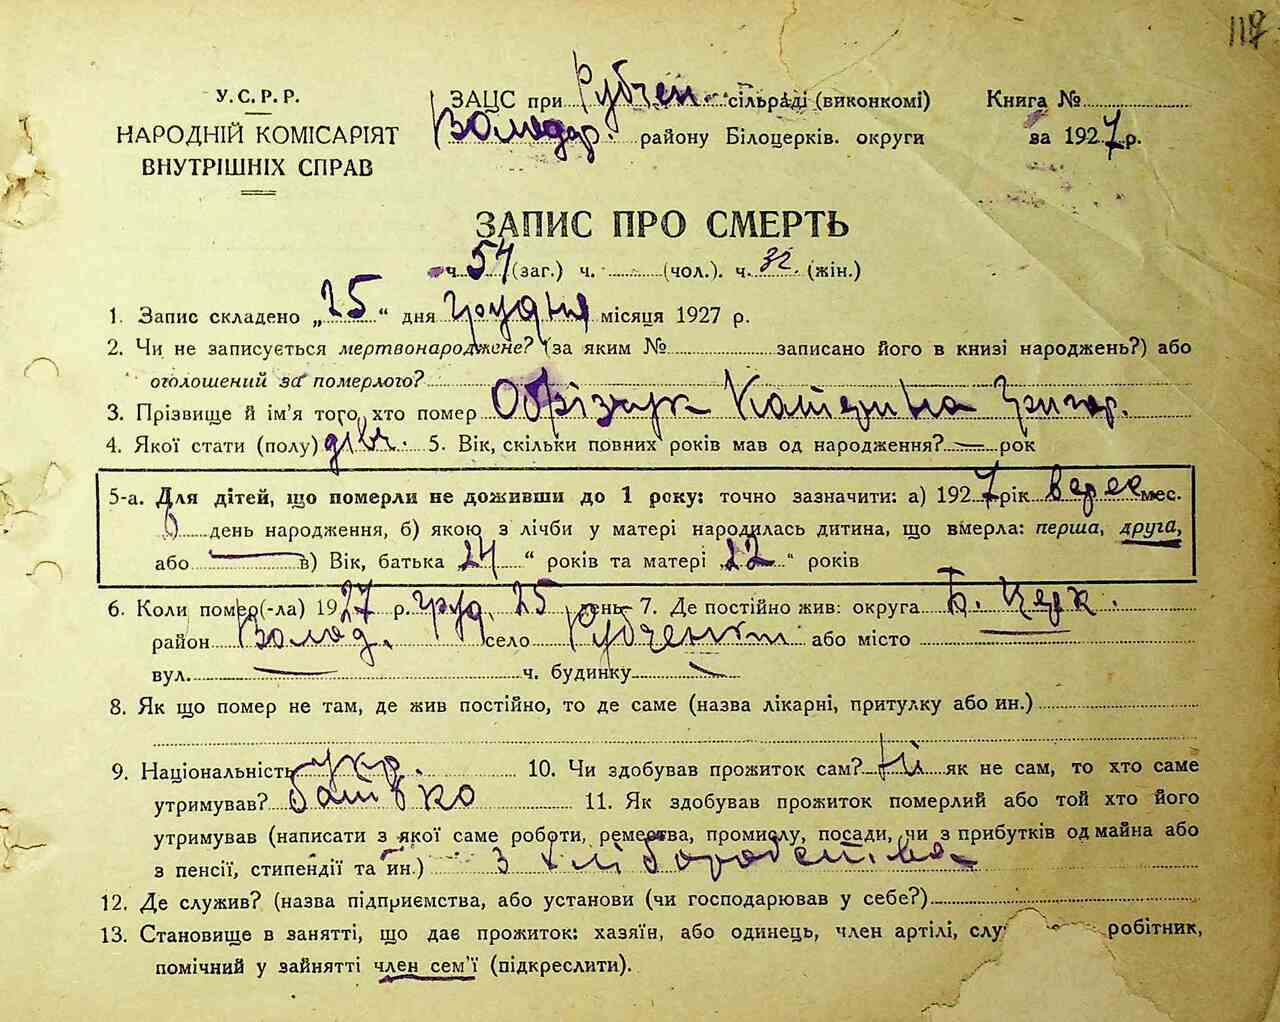 118
У.С.Р.Р.
НАРОДНІЙ КОМІСАРІЯТ
ВНУТРІШНІХ СПРАВ
ЗАЦС при Рубчен. сільраді (виконкомі)
Володар. району Білоцерків. округи
Книга №
за 1927 р.
ЗАПИС ПРО СМЕРТЬ
ч. 54 (заг.) ч. (чол.). ч. 32 (жін.)
1. Запис складено „25“ дня грудня місяця 1927 р.
2. Чи не записується мертвонароджене? (за яким № записано його в книзі народжень?) або
оголошений за померлого?
3. Прізвище й ім'я того, хто помер Обрізчук Катерина Григор.
4. Якої стати (полу) дівч. 5. Вік, скільки повних років мав од народження? — рок
5-а. Для дітей, що померли не доживши до 1 року: точно зазначити: а) 1927 рік верес мес.
день народження, б) якою з лічби у матері народилась дитина, що вмерла: перша, друга,
або — в) Вік, батька 24 “ років та матері „22“ років
6. Коли помер(-ла) 1927 р. груд. 25 день 7. Де постійно жив: округа Б. Церк.
район Волод. село Рубченки або місто
вул. — ч. будинку —
8. Як що помер не там, де жив постійно, то де саме (назва лікарні, притулку або ин.)
9. Національність укр. 10. Чи здобував прожиток сам? Ні як не сам, то хто саме
утримував? батько 11. Як здобував прожиток померлий або той хто його
утримував (написати з якої саме роботи, ремества, промислу, посади, чи з прибутків од майна або
з пенсії, стипендії та ин.) з хліборобства
12. Де служив? (назва підприємства, або установи (чи господарював у себе?)
13. Становище в занятті, що дає прожиток: хазяїн, або одинець, член артілі, слу робітник,
помічний у зайнятті член сем'ї (підкреслити).